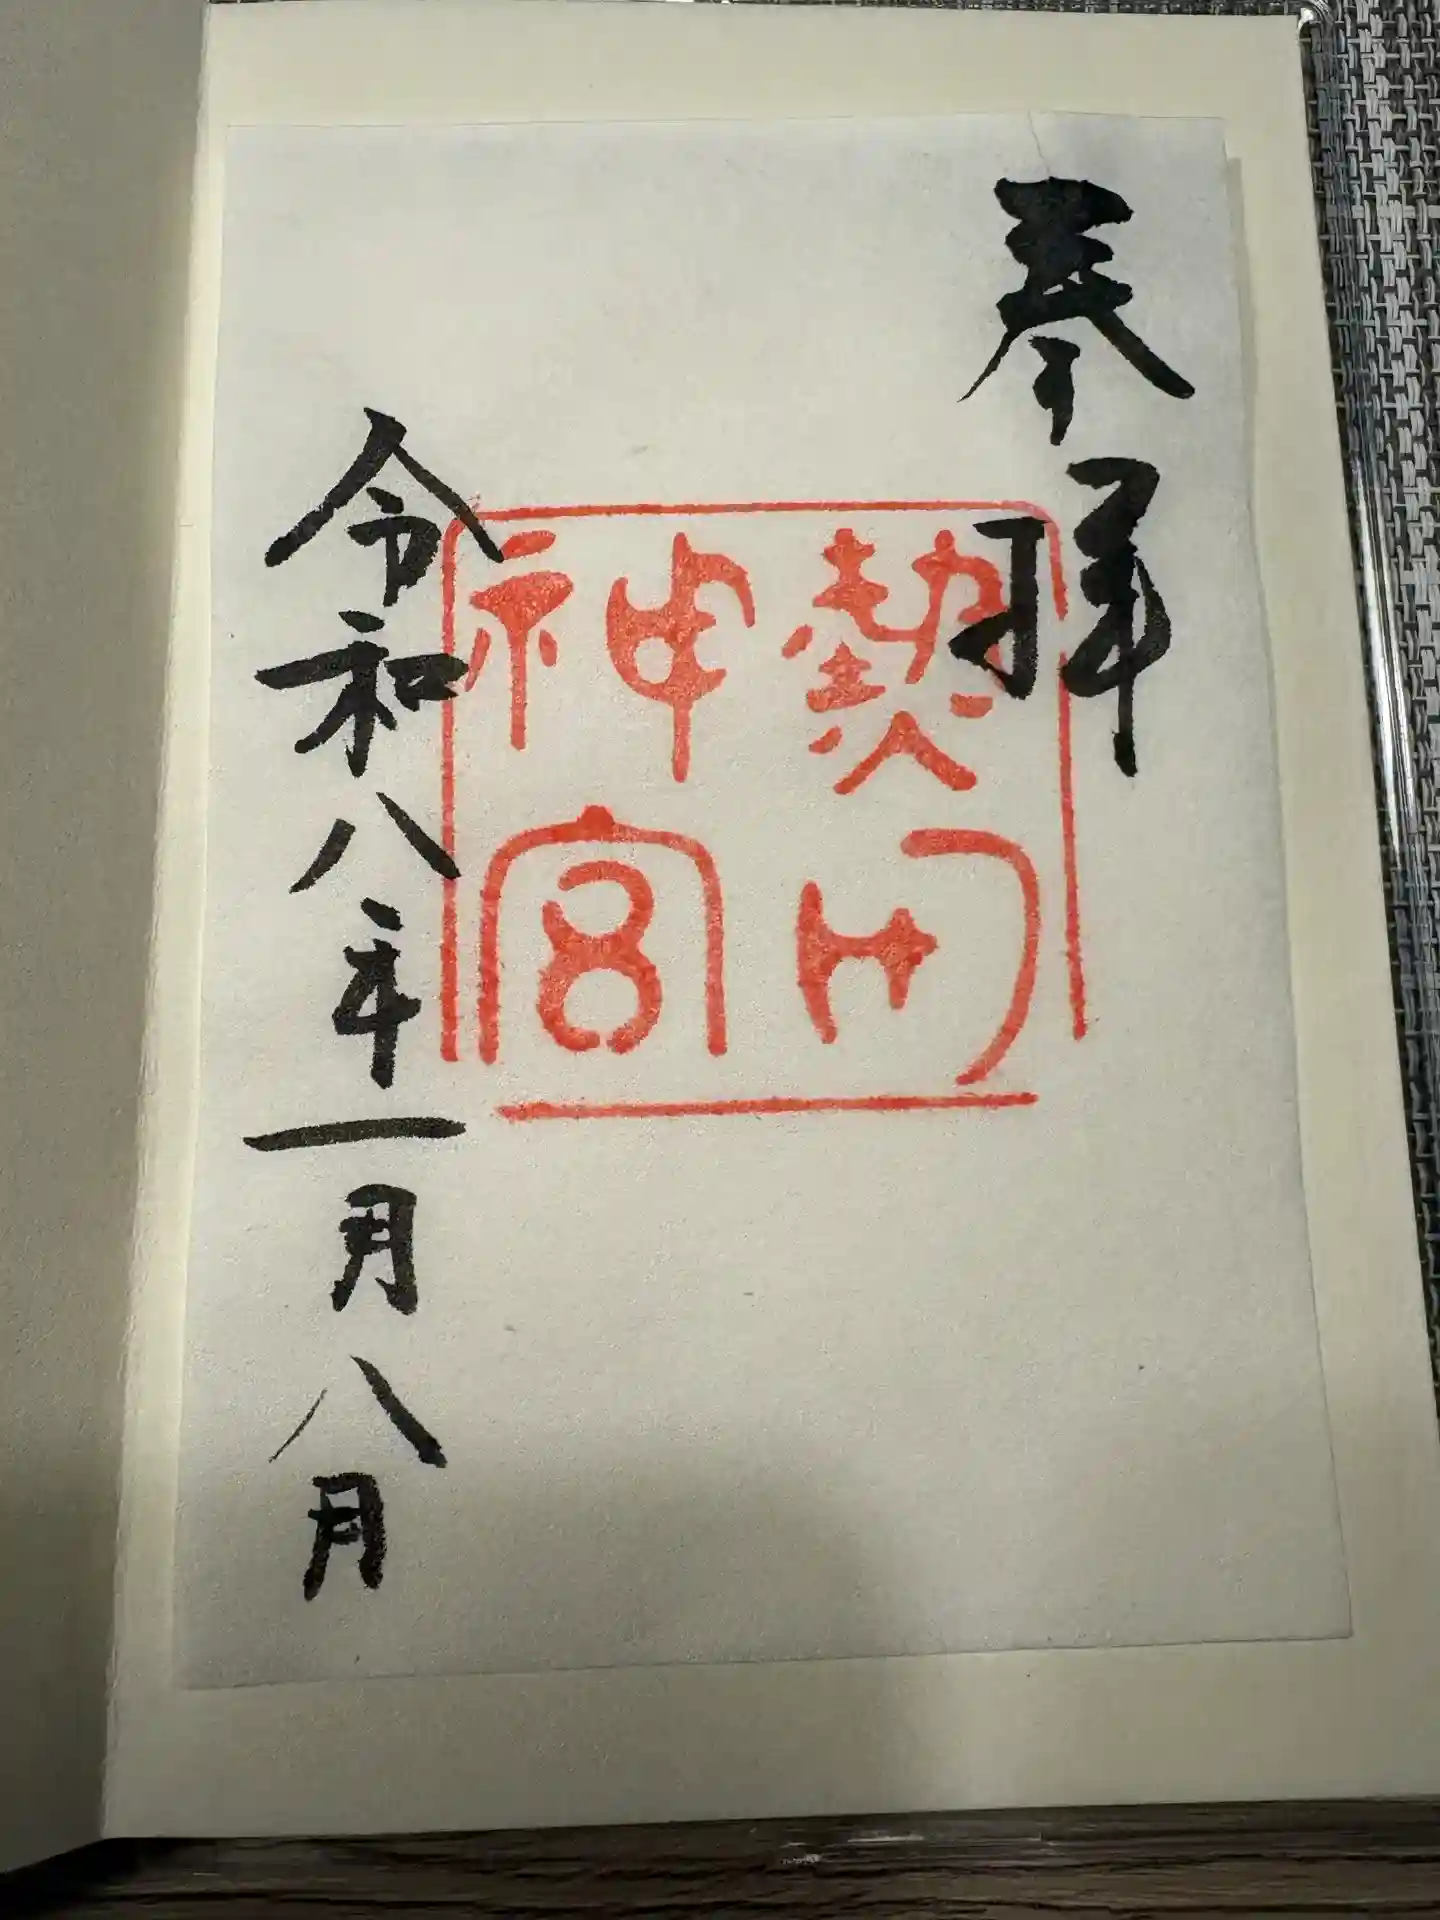 奉拝
熱田神宮
令和八年一月八日